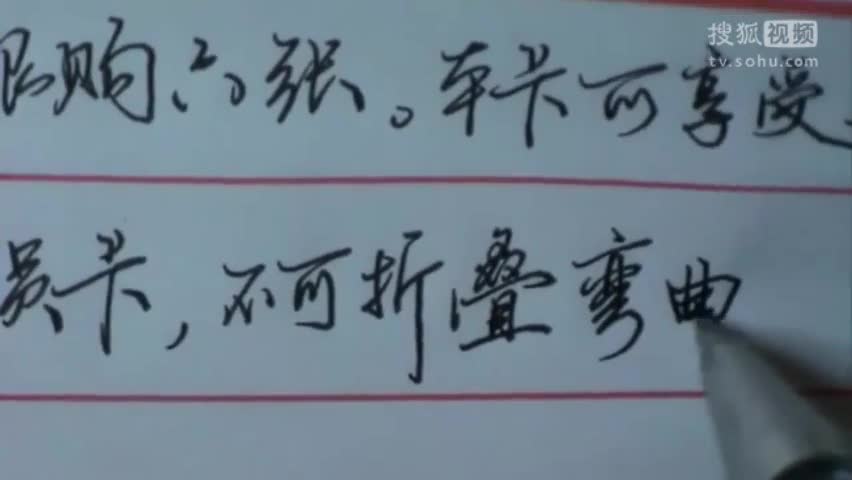 搜狐视频
tv.sohu.com
限购六张。本卡可享受
员卡，不可折叠弯曲